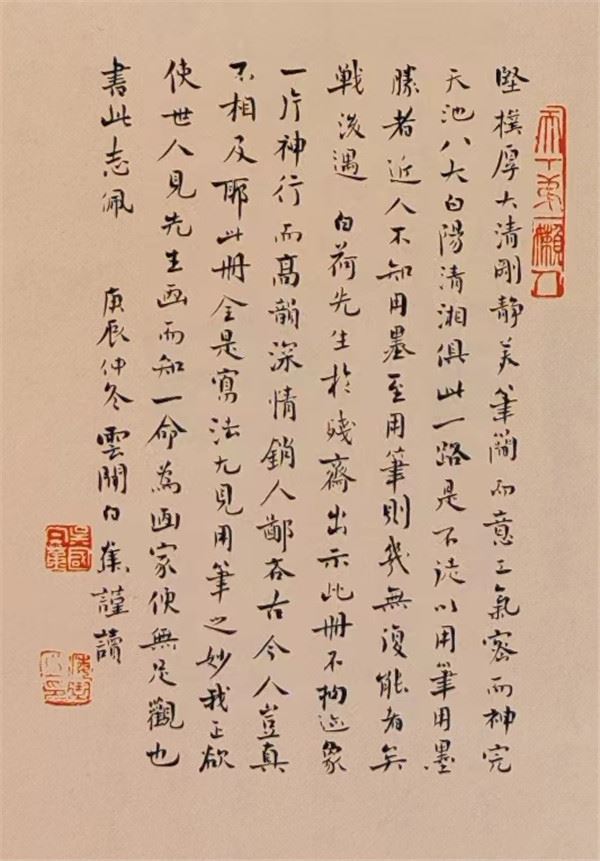 堅樸厚大清剛靜美筆簡而意工氣密而神完
天池八大白陽清湘俱此一路是不徒以用筆用墨
勝者近人不知用墨至用筆則幾無復能者矣
戦後遇 白荷先生於殘齋出示此冊不拘迹象
一片神行而高韻深情銷人鄙吝古今人豈真
不相及耶此冊全是寫法尤見用筆之妙我正欲
使世人見先生画而知一命為画家便無足觀也
書此志佩 庚辰仲冬雲間白蕉謹讀